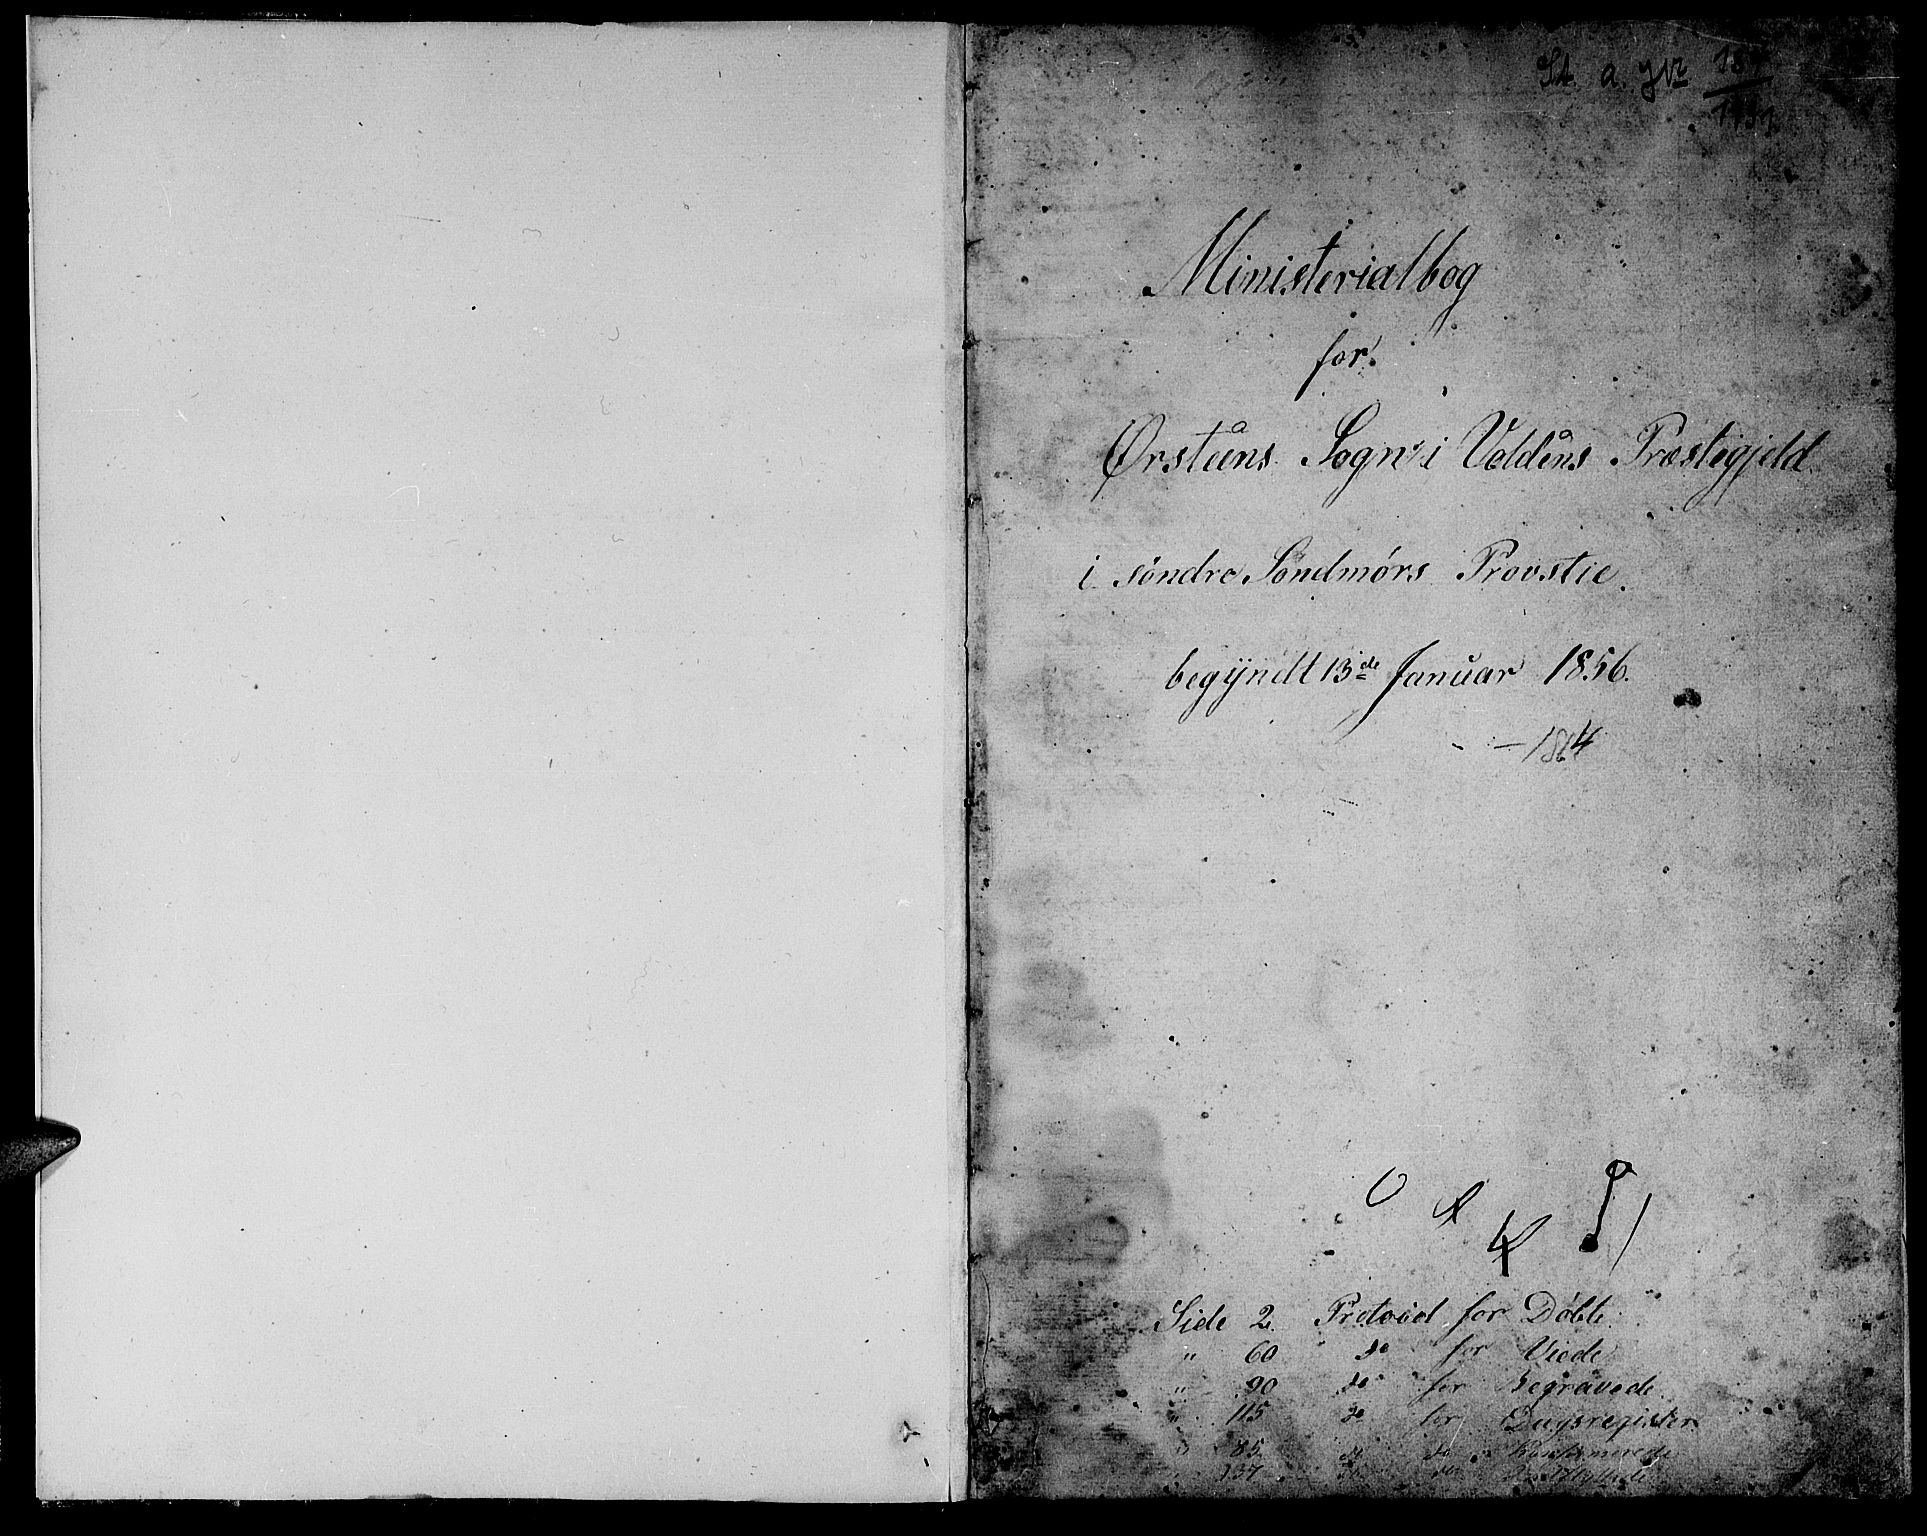 St. a. J.Nr
Ministerialbog
for
Ørsteens Sogn i Voldens Præstegjeld
i söndre Söndmörs Provstie.
begyndt 13de Januar 1856.
- 1864
Side 2. Protocol for Döbte.
" 60 do for Viede
" 90 do for Begravede.
" 115 do for Dagsregister
" 85 do do Konfirmerede
" 137 do do